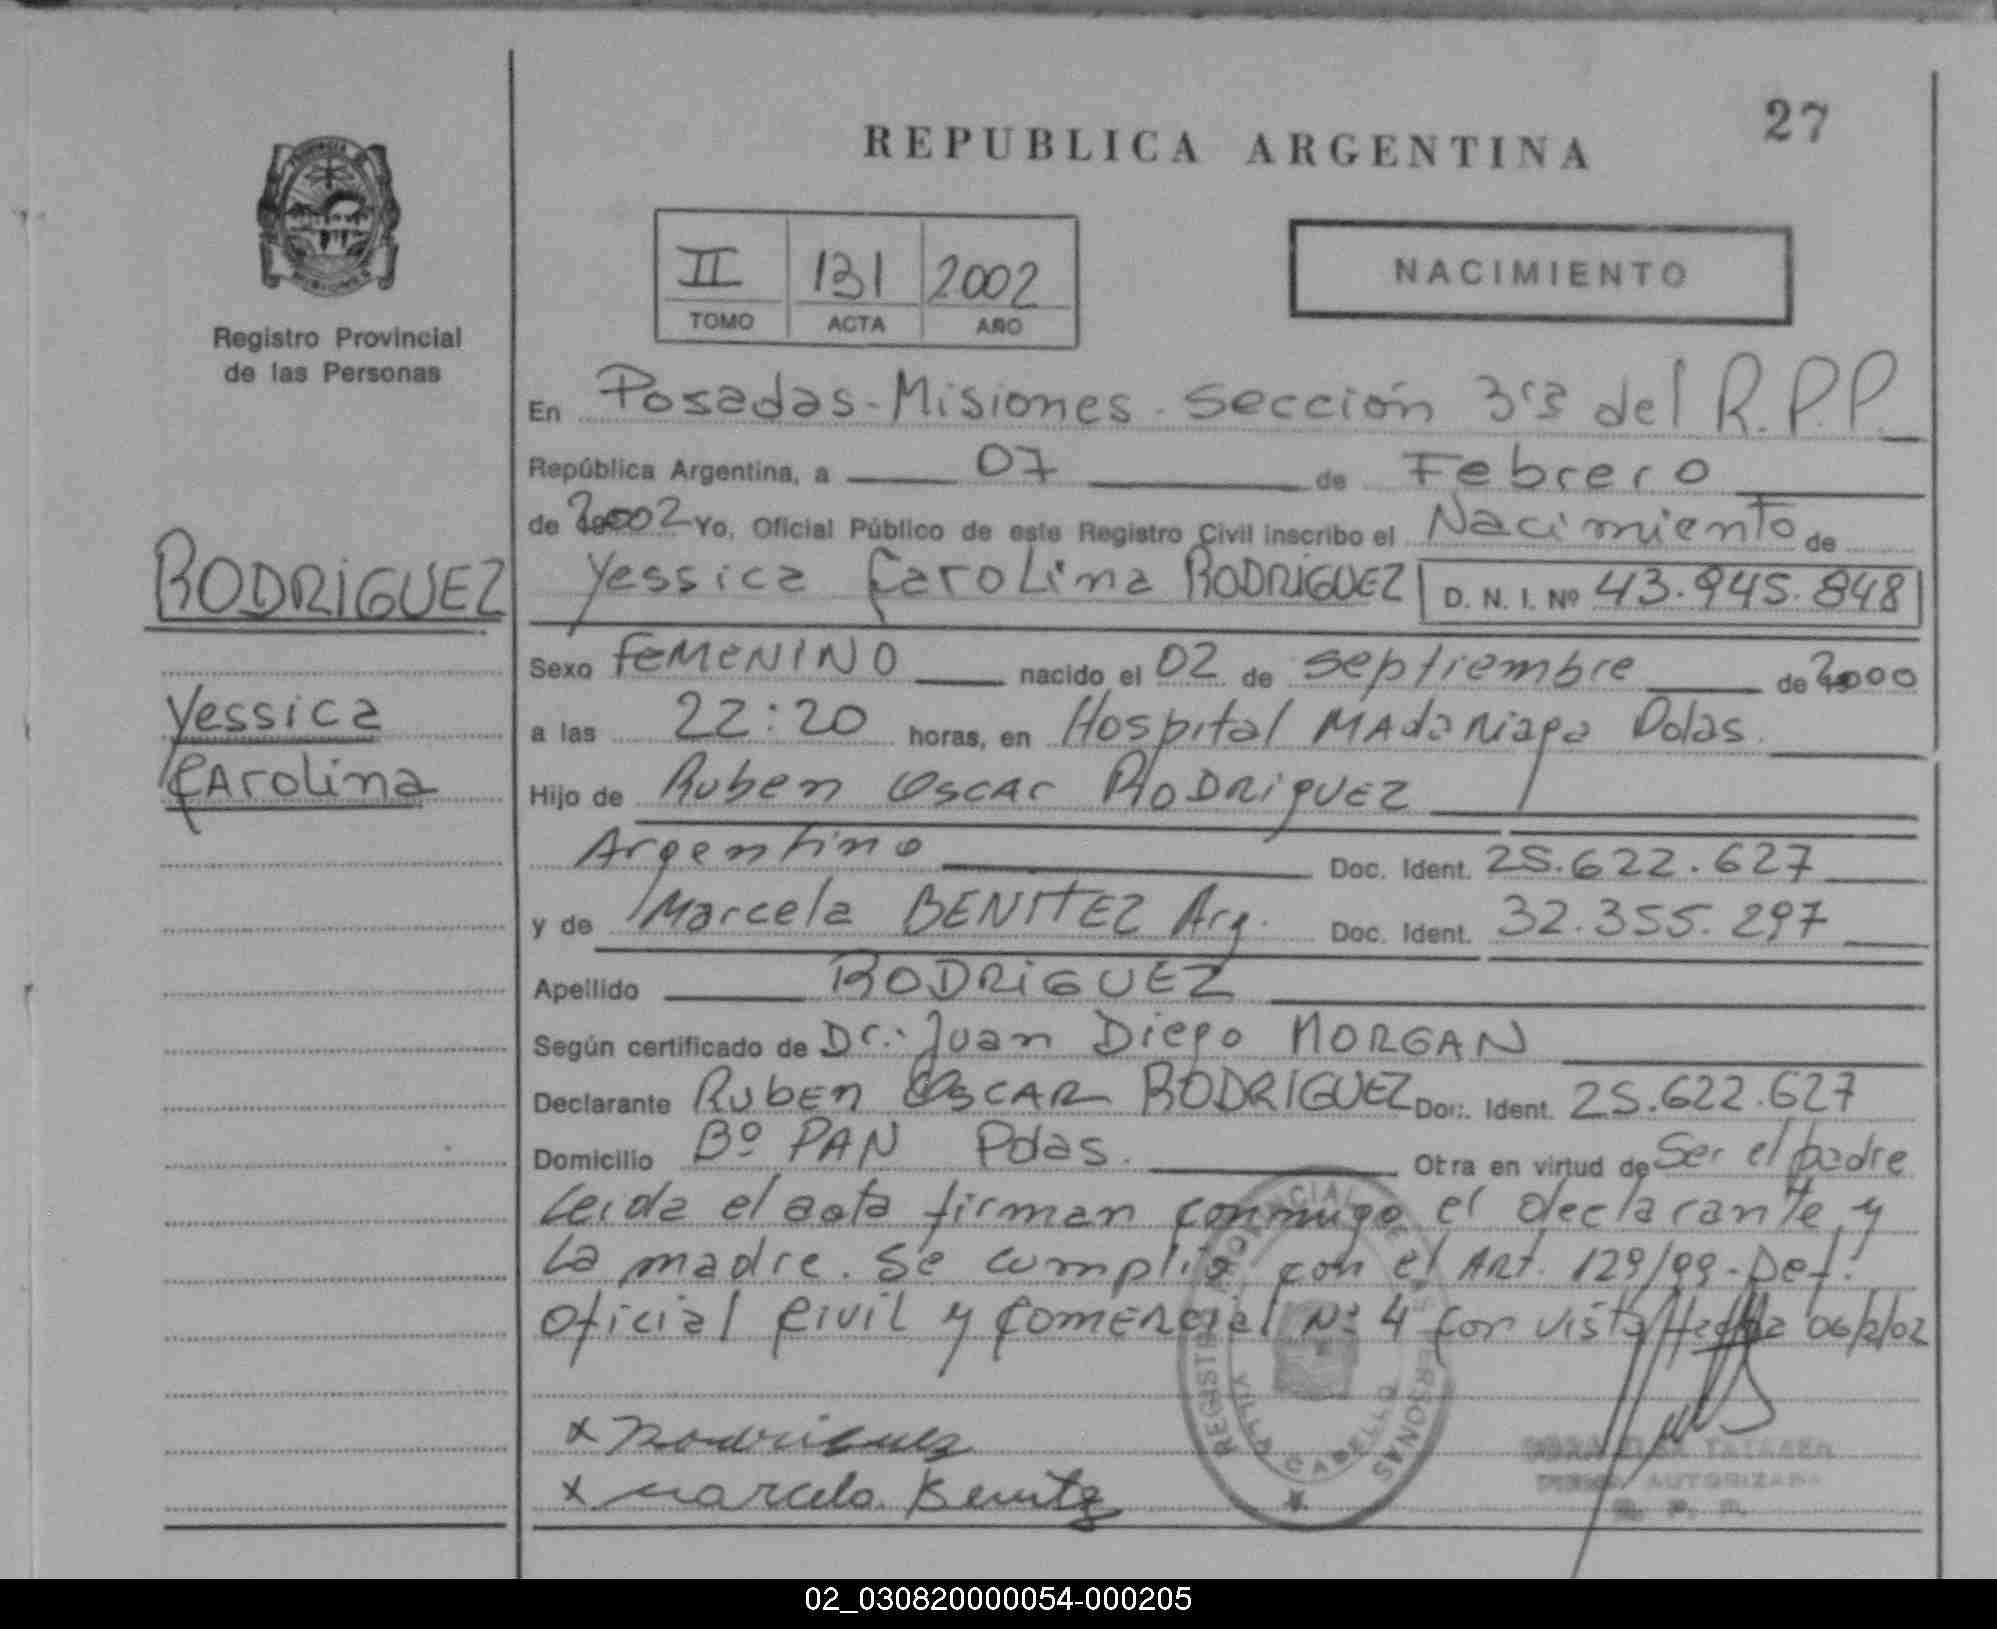 27
REPUBLICA ARGENTINA
II 131 2002
TOMO ACTA AÑO
NACIMIENTO
Registro Provincial
de las Personas
En Posadas-Misiones. Sección 3ra del R.P.P.
República Argentina, a 07 de Febrero
de 2002 Yo, Oficial Público de este Registro Civil inscribo el Nacimiento de
Yessica Carolina RODRIGUEZ D. N. I. Nº 43.945.848
RODRIGUEZ
Yessica
Carolina
Sexo FEMENINO nacido el 02 de septiembre de 2000
a las 22:20 horas, en Hospital MAdariaga Pdas.
Hijo de Ruben Oscar RODRIGUEZ
Argentino Doc. Ident. 25.622.627
y de Marcela BENITEZ Arg. Doc. Ident. 32.355.297
Apellido RODRIGUEZ
Según certificado de Dr. Juan Diego MORGAN
Declarante Ruben OSCAR RODRIGUEZ Doc. Ident. 25.622.627
Domicilio Bº PAN Pdas. Otra en virtud de Ser el padre
Leida el acta firman conmigo el declarante y
La madre. Se cumplió con el Art. 129/99-Def.
oficial Civil y Comercial Nº 4 con vista 06/2/02
x Rodriguez
x Marcela Benitez
REGISTRO PROVINCIAL DE PERSONAS
VILLA CABELLO
AUTORIZADA
02_030820000054-000205